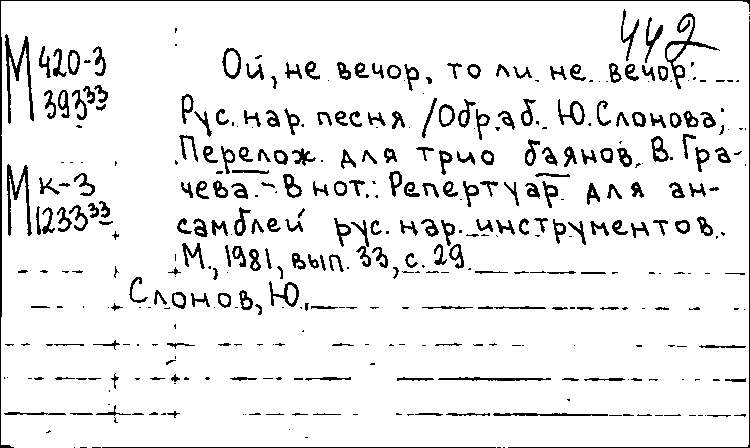 442
М 420-3
393³³
Ой, не вечор, то ли не вечор:
Рус. нар. песня / Обраб. Ю. Слонова;
Перелож. для трио баянов В. Гра-
чева. - В нот.: Репертуар для ан-
самблей рус. нар. инструментов.
М., 1981, вып. 33, с. 29.
М к-3
1233³³
Слонов, Ю.